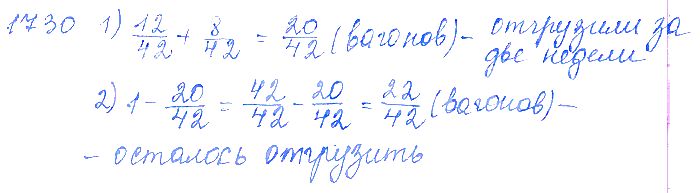 1730 1) 12/42 + 8/42 = 20/42 (вагонов) – отгрузили за
две недели
2) 1 – 20/42 = 42/42 – 20/42 = 22/42 (вагонов) –
– осталось отгрузить